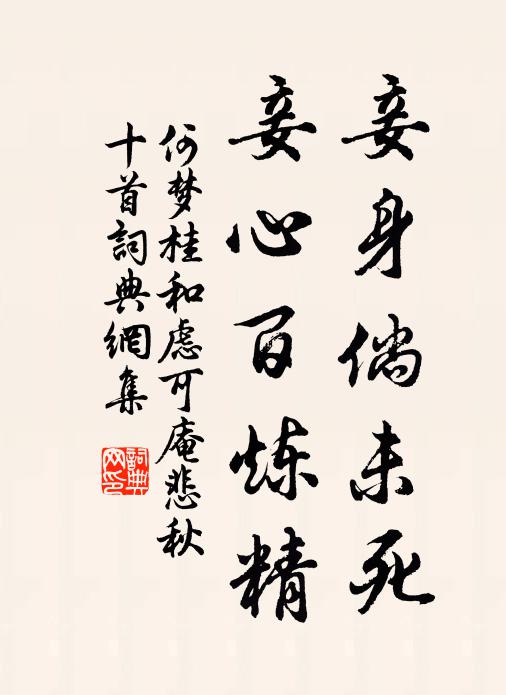 妾身倘未死
妾心百炼精
何梦桂和虑可庵悲秋
十首詞典網集
詞典
网印